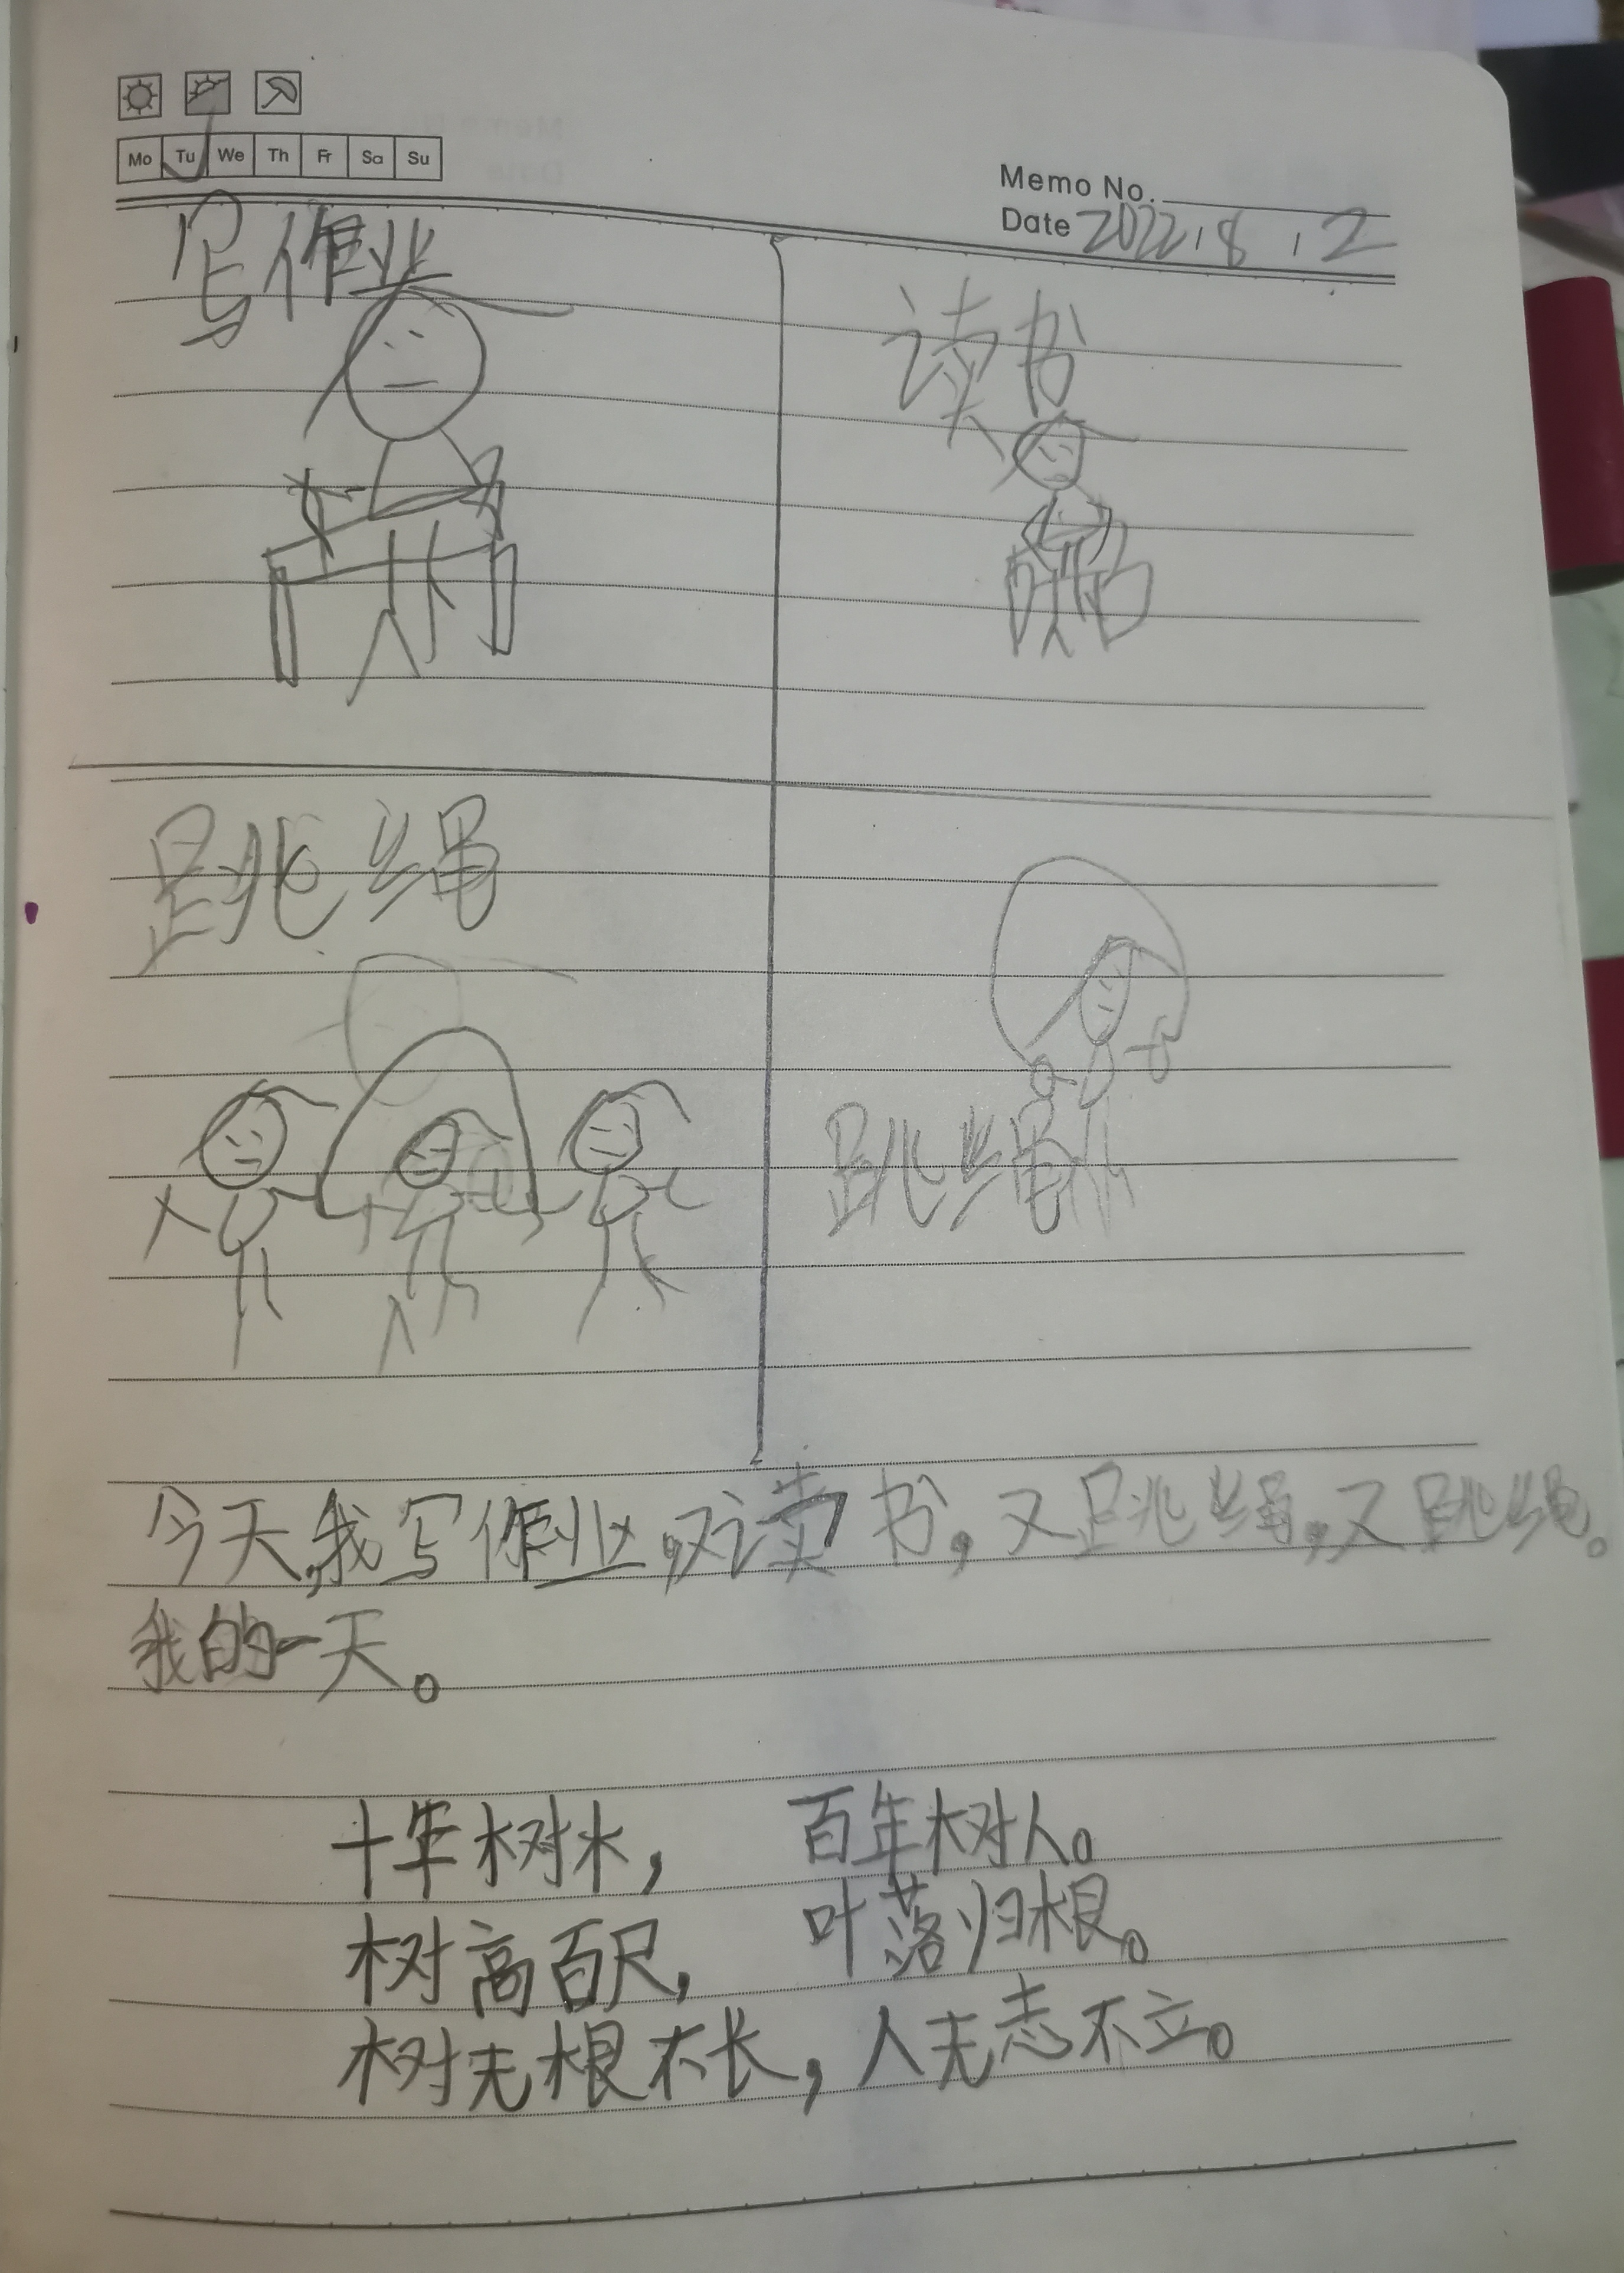 Mo Tu We Th Fr Sa Su
Memo No.
Date 2022.8.2
写作业
读书
跳绳
跳绳
今天,我写作业,又读书,又跳绳,又跳绳。
我的一天。
十年树木, 百年树人。
树高百尺, 叶落归根。
树无根不长,人无志不立。